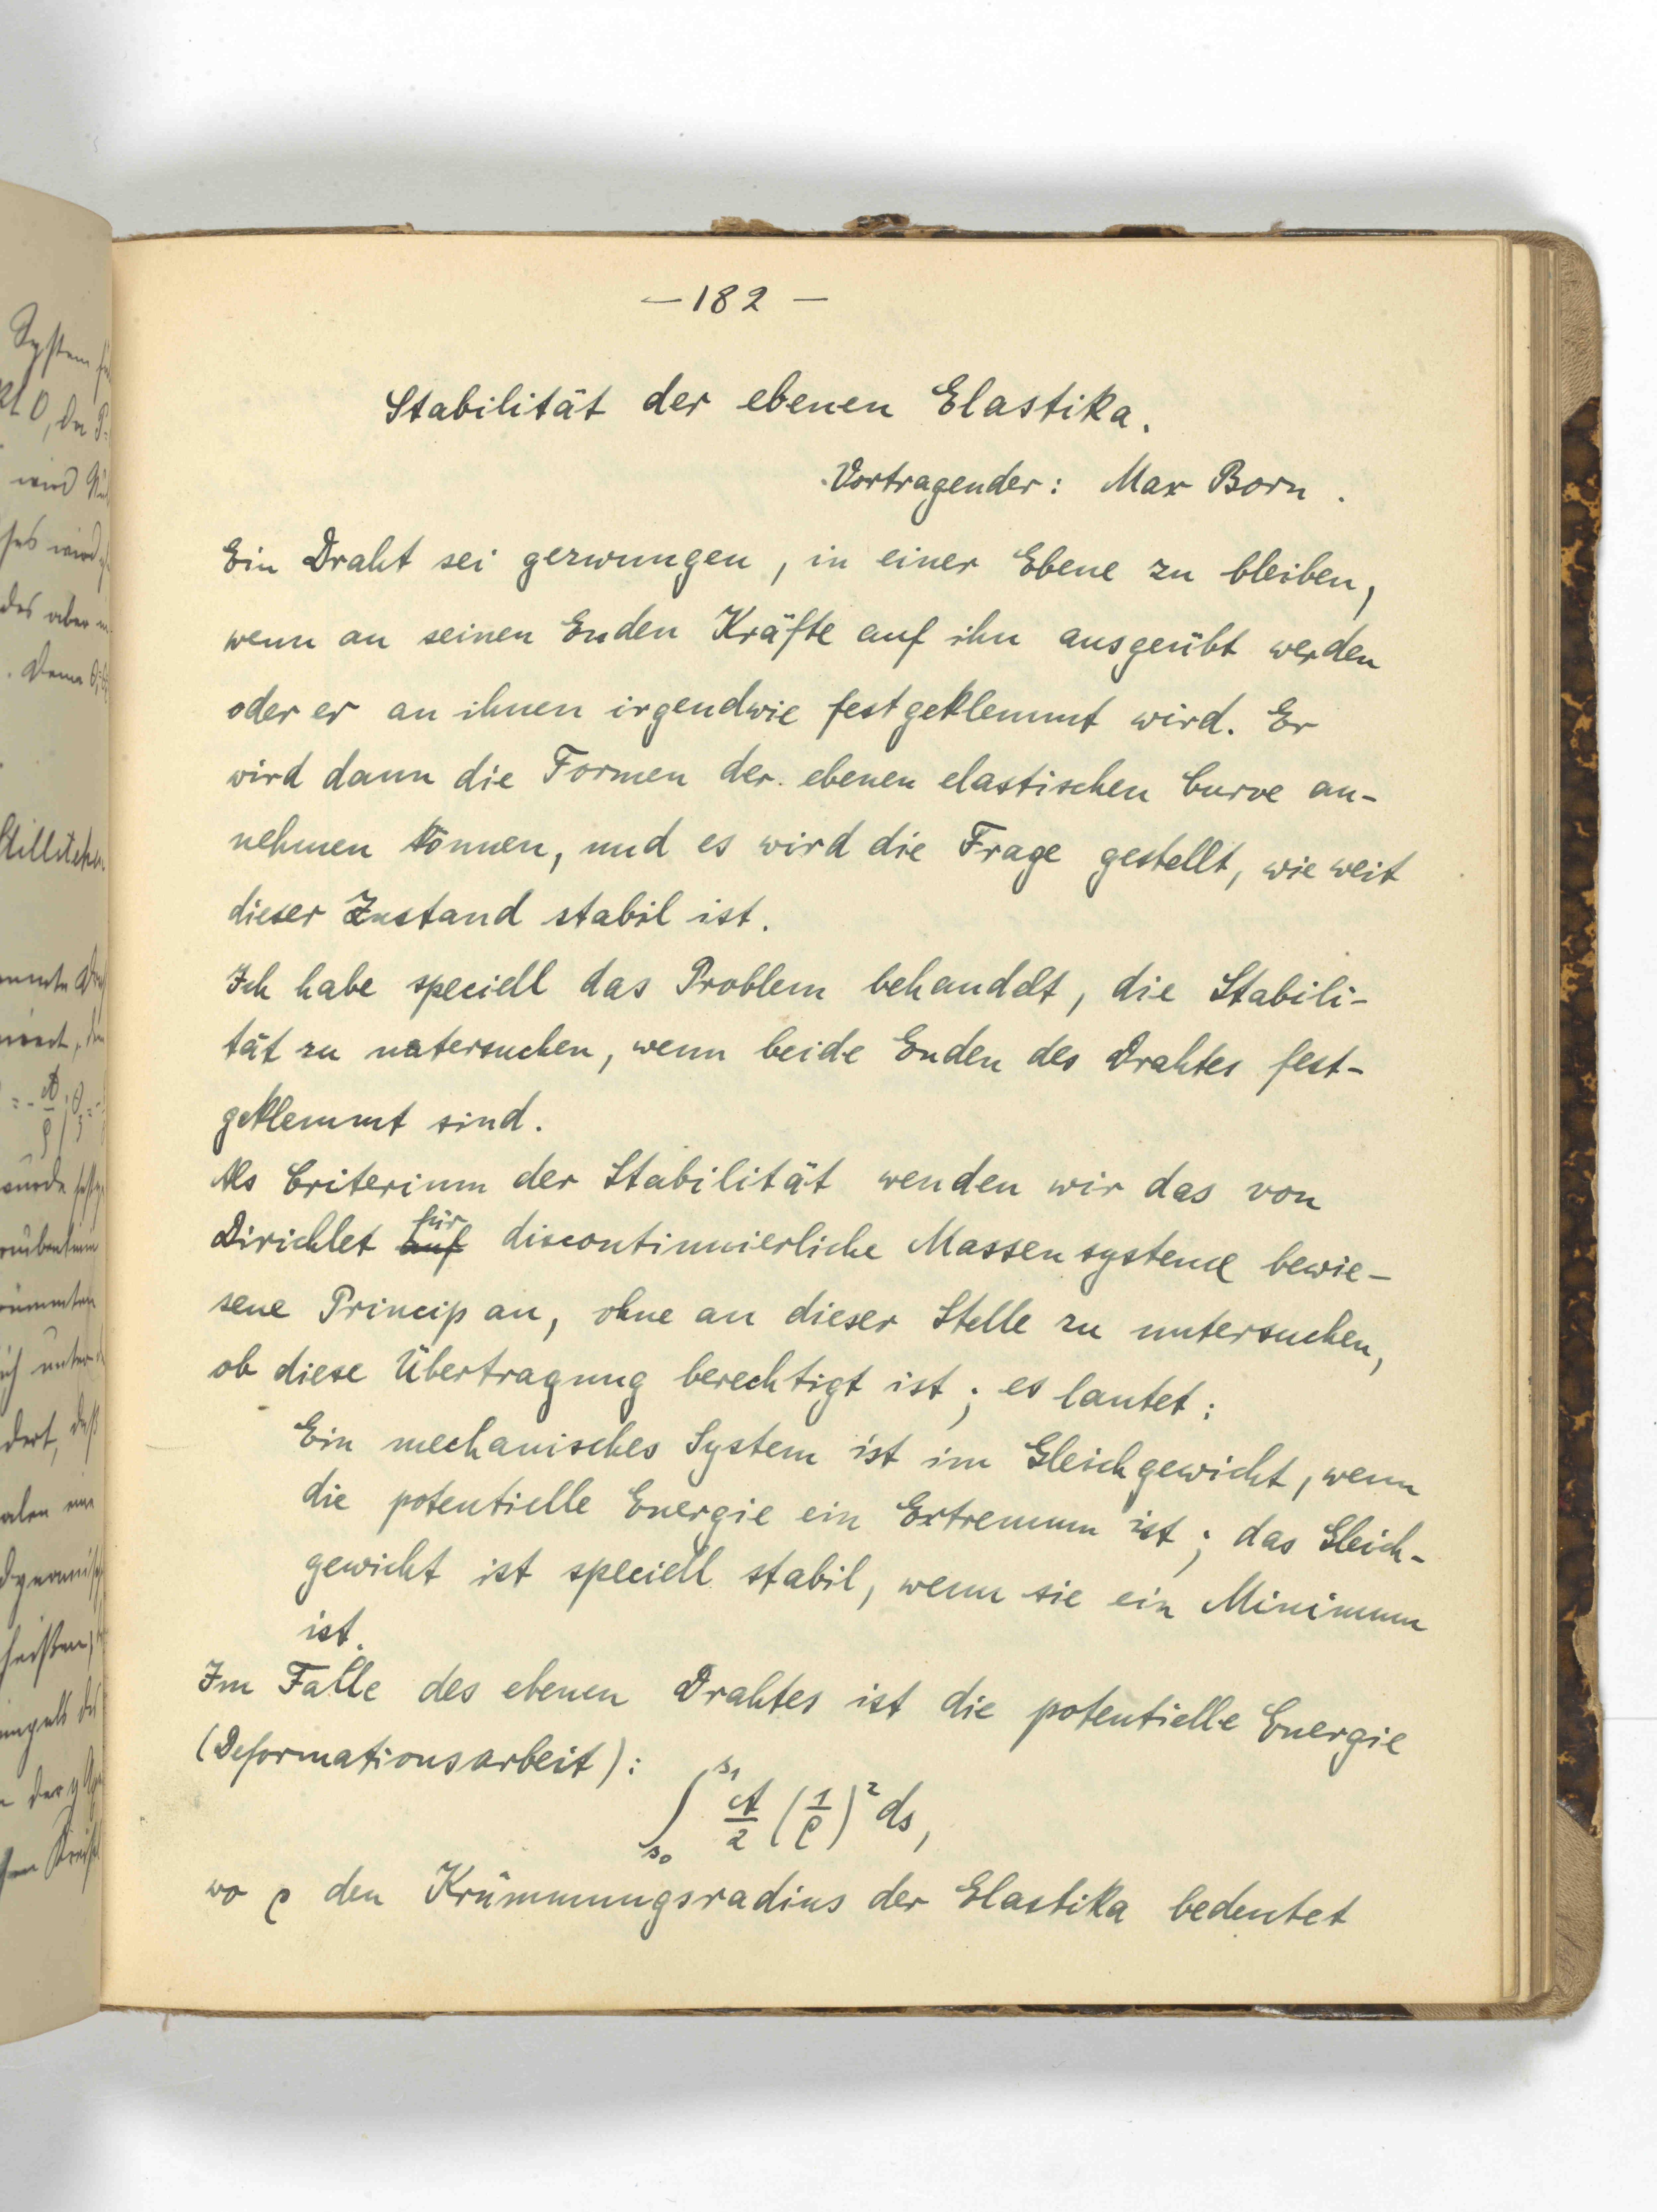 —182—
Stabilität der ebenen Elastika.
Vortragender: Max Born.
Ein Draht sei gezwungen, in einer Ebene zu bleiben,
wenn an seinen Enden Kräfte auf ihn ausgeübt werden
oder er an ihnen irgendwie festgeklemmt wird. Er
wird dann die Formen der ebenen elastischen Curve an-
nehmen können, und es wird die Frage gestellt, wie weit
dieser Zustand stabil ist.
Ich habe speciell das Problem behandelt, die Stabili-
tät zu untersuchen, wenn beide Enden des Drahtes fest-
geklemmt sind.
Als Criterium der Stabilität wenden wir das von
Dirichlet auf für discontinuierliche Massensysteme bewie-
sene Princip an, ohne an dieser Stelle zu untersuchen,
ob diese Übertragung berechtigt ist; es lautet:
Ein mechanisches System ist im Gleichgewicht, wenn
die potentielle Energie ein Extremum ist; das Gleich-
gewicht ist speciell stabil, wenn sie ein Minimum
ist.
Im Falle des ebenen Drahtes ist die potentielle Energie
(Deformationsarbeit):
∫_{s₀}^{s₁} A/2 (1/ρ)² ds,
wo ρ den Krümmungsradius der Elastika bedeutet